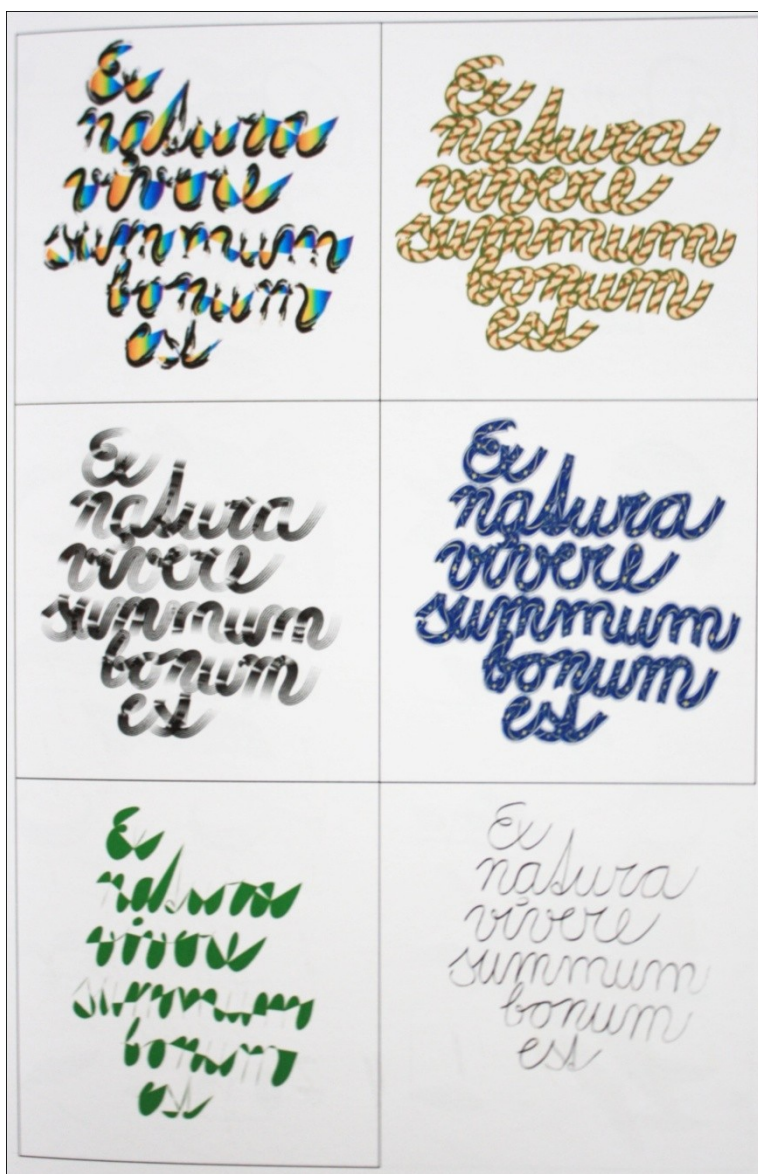 Ex
natura
vivere
summum
bonum
est
Ex
natura
vivere
summum
bonum
est
Ex
natura
vivere
summum
bonum
est
Ex
natura
vivere
summum
bonum
est
Ex
natura
vivere
summum
bonum
est
Ex
natura
vivere
summum
bonum
est